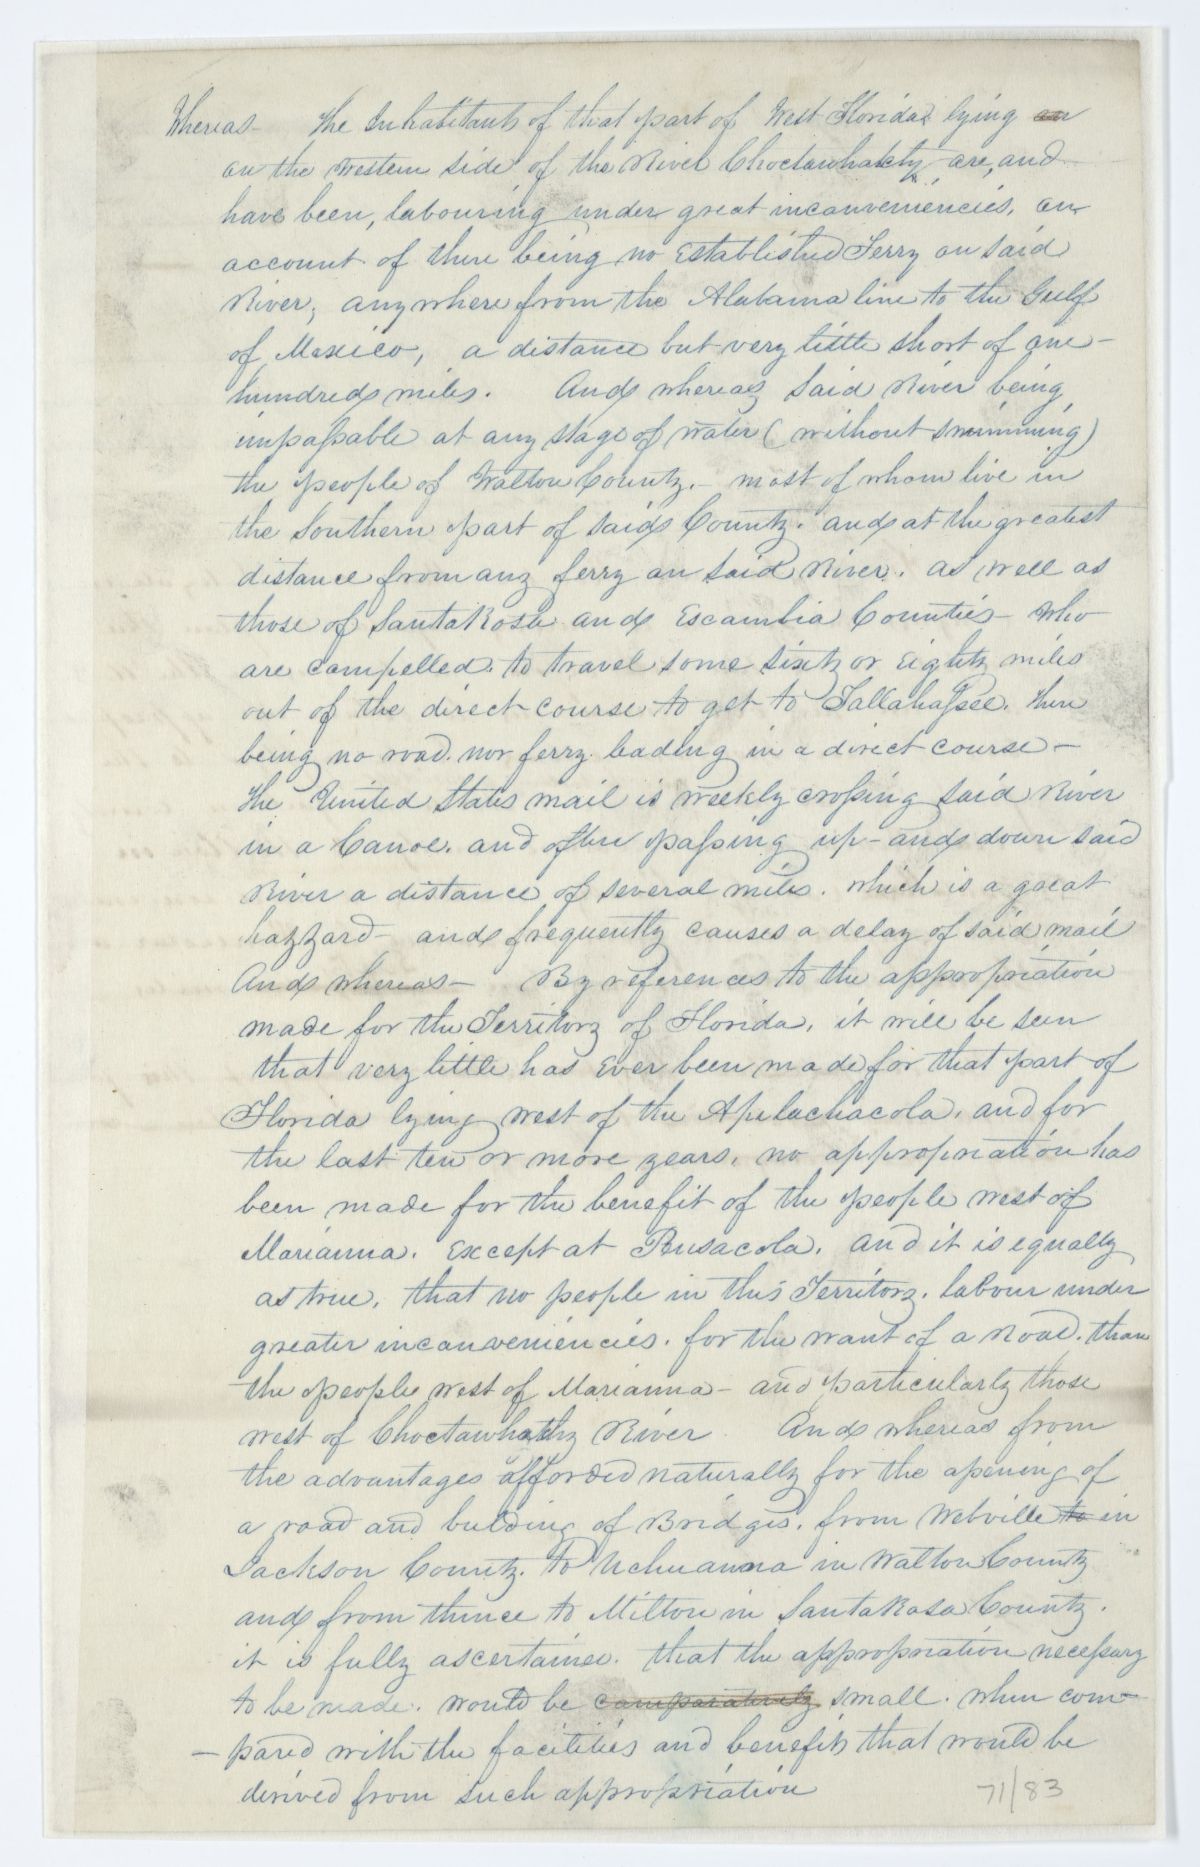 Whereas— The Inhabitants of that part of West Florida lying on
on the Western side of the River Choctawhatchy are, and
have been, labouring under great inconveniencies, on
account of there being no Established Ferry on said
River, any where from the Alabama line to the Gulf
of Mexico, a distance but very little short of one-
hundred miles. And whereas said River being
impassable at any stage of water (without swimming)
the people of Walton County.— most of whom live in
the Southern part of said County. and at the greatest
distance from any ferry on said River. as well as
those of Santa Rosa and Escambia Counties— Who
are compelled. to travel some sixty or Eighty miles
out of the direct course to get to Tallahassee. there
being no road. nor ferry leading in a direct course—
The United States mail is weekly crossing said River
in a Canoe. and often passing up- and down said
River a distance of several miles. which is a great
hazzard— and frequently causes a delay of said mail
And whereas— By references to the appropriation
made for the Territory of Florida, it will be seen
that very little has Ever been made for that part of
Florida lying west of the Apelachacola, and for
the last ten or more years, no appropriation has
been made for the benefit of the people west of
Marianna. Except at Pensacola. and it is equally
as true, that no people in this Territory. labour under
greater inconveniencies. for the want of a Road. than
the people west of Marianna— and particularly those
west of Choctawhatchy River And whereas from
the advantages afforded naturally for the opening of
a road and building of Bridges. from Webville to in
Jackson County. to Uchuanna in Walton County
and from thence to Milton in Santa Rosa County.
it is fully ascertained. that the appropriation necessary
to be made. would be comparatively small. when com-
-pared with the facilities and benefits that would be
derived from such appropriation
71/83